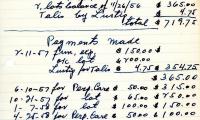 r, lots balance of 7/26/56 $ 365.00
Talis by Lusty $ 4.75
total $ 719.75
Pegments made
7-11-57 from $ 150.00
o/c lot $ 200.00
Lusty for Talis $ 4.75 $ 354.75
$ 365.00
6-10-57 for Perp. Care $ 50.00 $ 315.00
10-21-57 for lot $ 65.00 $
1-7-58 for lot $ 100.00 $ 150.00
4-25-58 for Perp. Care $ 50.00 $ 100.00